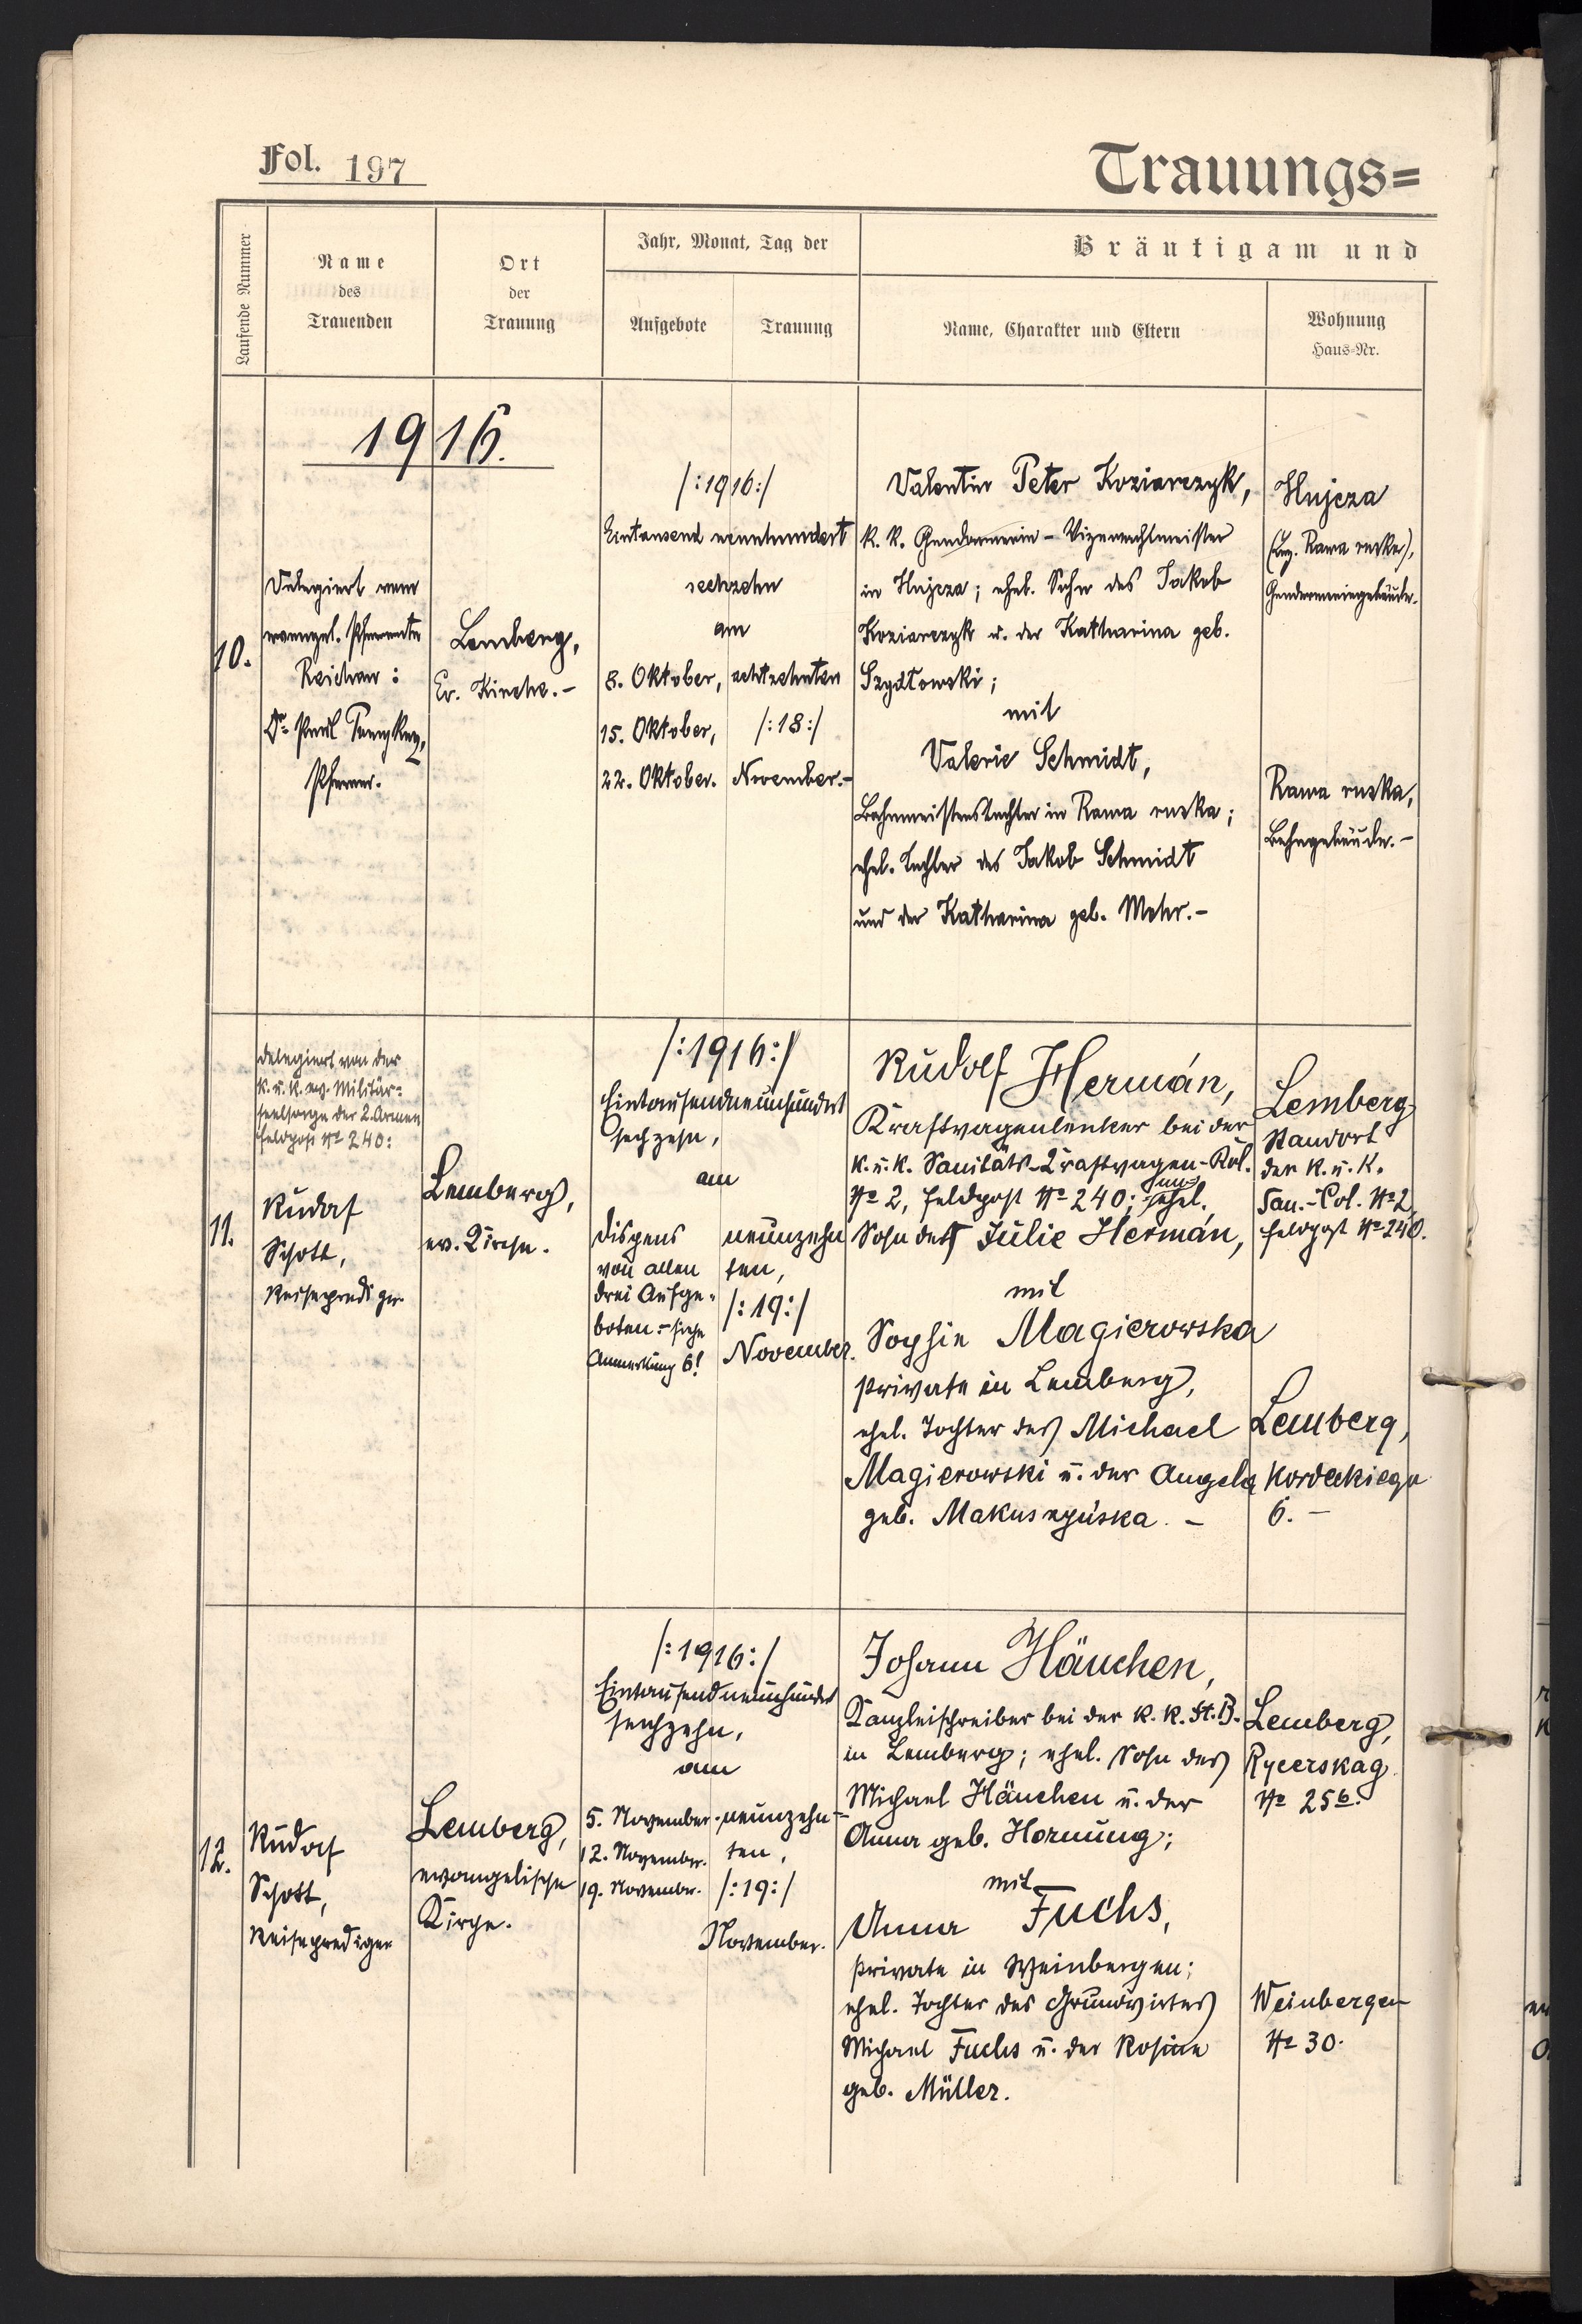 Fol. 197
Trauungs=
Laufende Nummer
Name
des
Trauenden
Ort
der
Trauung
Jahr, Monat, Tag der
Aufgebote
Trauung
Bräutigam und
Name, Charakter und Eltern
Wohnung
Haus=Nr.
1916.
10.
Delegiert vom
evangel. Pfarramte
Reichau:
Dr Paul
Pfarrer.
Lemberg,
Ev. Kirche.-
/:1916:/
Eintausend neunhundert
sechzehn
am
8. Oktober,
15. Oktober,
22. Oktober.
achtzehnten
/:18:/
November.-
Valentin Peter Koziarczyk,
k. k. Gendarmerie-Vizewachtmeister
in Hujcza; ehel. Sohn des Jakob
Koziarczyk u. der Katharina geb.
Szydłowski;
mit
Valerie Schmidt,
Bahnmeisterstochter in Rawa ruska;
ehel. Tochter des Jakob Schmidt
und der Katharina geb. Mohr.-
Hujcza
(Bez. Rawa ruska),
Gendarmeriegebäude.
Rawa ruska,
Bahngebäude.-
11.
delegiert von der
k. u. k. ev. Militär=
seelsorge der 2. Armee
Feldpost No 240:
Rudolf
Schott,
Reiseprediger
Lemberg,
ev. Kirche.
/:1916:/
Eintausendneunhundert
sechzehn,
am
Dispens
von allen
drei Aufge=
boten:- siehe
Anmerkung 6!
neunzehn
ten,
/:19:/
November.
Rudolf Hermán,
Kraftwagenlenker bei der
k. u. k. Sanitäts-Kraftwagen-Kol.
No 2, Feldpost No 240; unehel.
Sohn der Julie Hermán,
mit
Sophie Magierowska
Private in Lemberg,
ehel. Tochter des Michael
Magierowski u. der Angela
geb. -
Lemberg
Standort
der k. u. k.
San.-Col. No 2,
Feldpost No 240.
Lemberg,
Kordeckiego
6.-
12.
Rudolf
Schott,
Reiseprediger
Lemberg,
evangelische
Kirche.
/:1916:/
Eintausendneunhundert
sechzehn,
am
5. November.
12. November.
19. November.
neunzehn-
ten,
/:19:/
November.
Johann Häuchen,
Kanzleischreiber bei der k. k. St. B.
in Lemberg; ehel. Sohn des
Michael Häuchen u. der
Anna geb. Hornung;
mit
Anna Fuchs,
Private in Weinbergen;
ehel. Tochter des Grundwirtes
Michael Fuchs u. der Rosina
geb. Müller.
Lemberg,
Rycerskag.
No 25b.
Weinbergen
No 30.